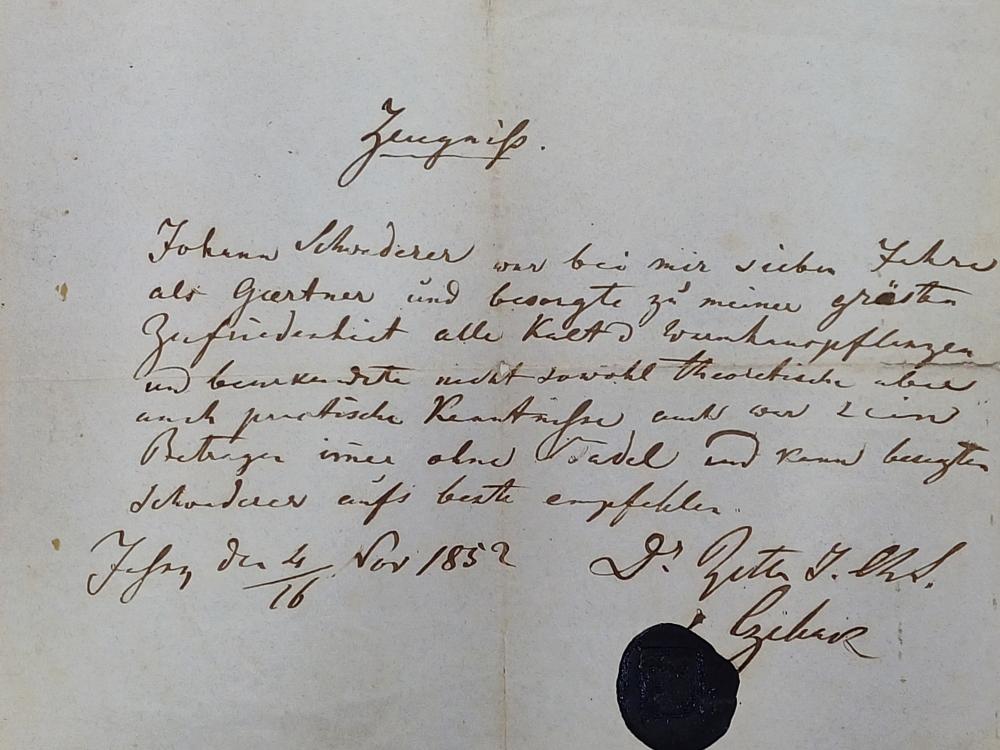 Zeugniß.
Johann Schwederer war bei mir sieben Jahre
als Gærtner und besorgte zu meiner grösten
Zufriedenheit alle Kalt & Warmhauspflanzen
und beurkundete nicht sowohl theoretische aber
auch practische Kenntniße auch war sein
Betragen imer ohne Tadel und kann besagten
Schwederer aufs beste empfehlen.
den 4/16 Nov 1852 Dr